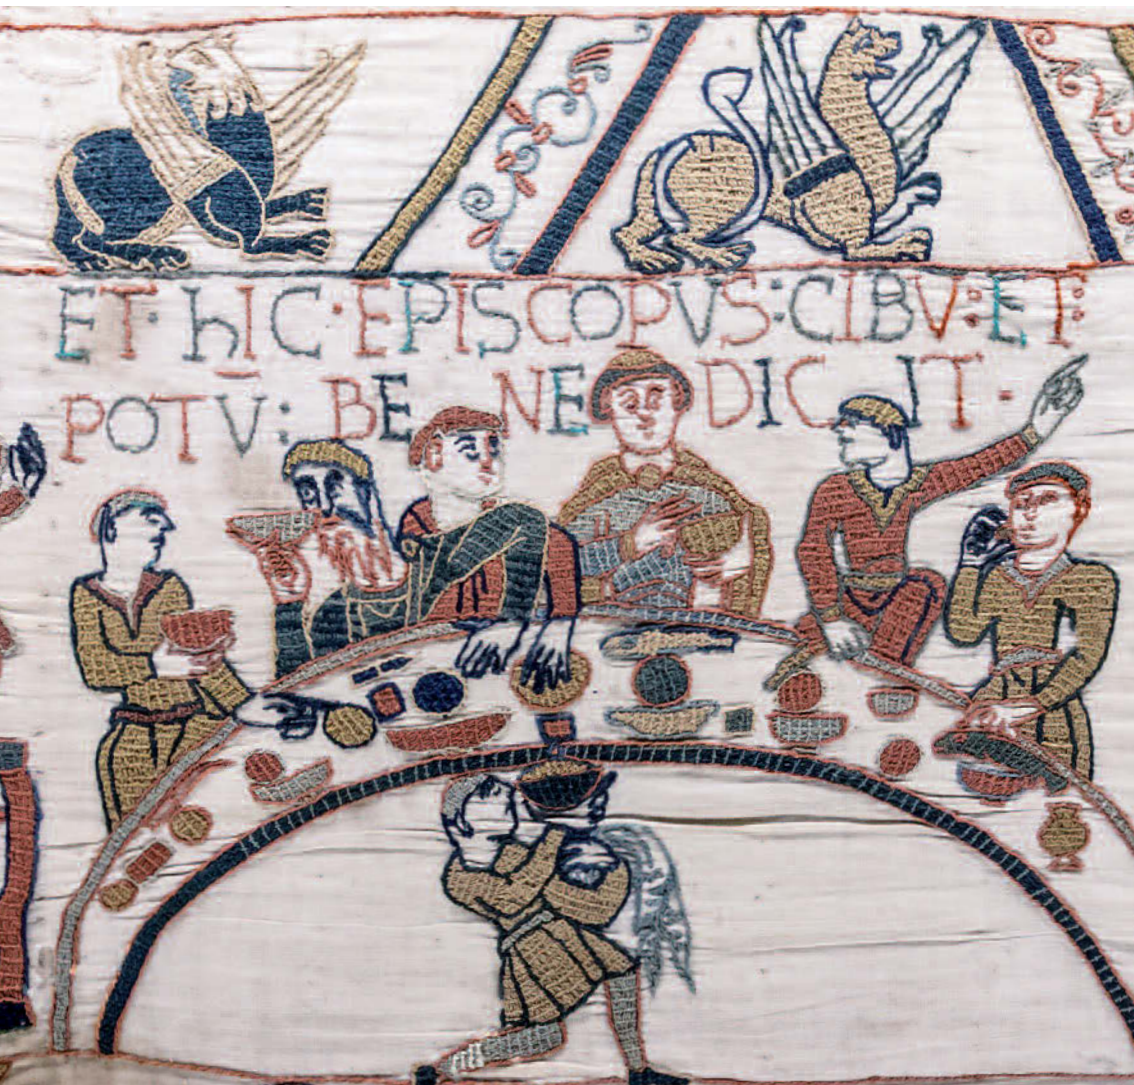 ET· hIC·EPISCOPVS:CIBV:ET:
POTV: BENEDICIT·